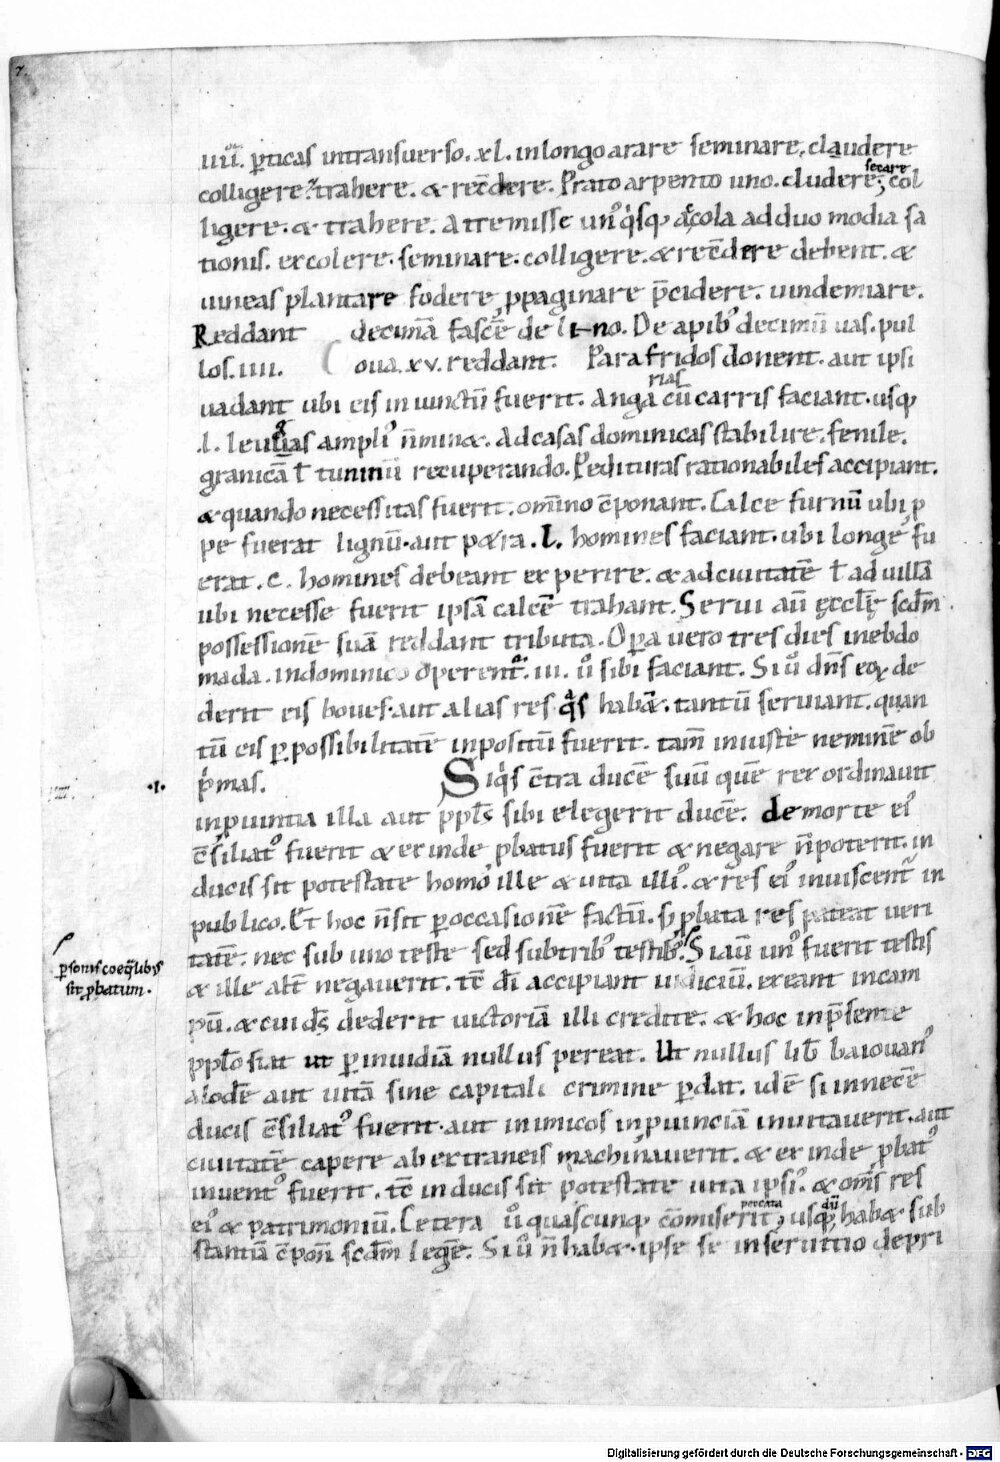 7.
iiii^or. p̄ticas intransuerso. xl. inlongo arare seminare. claudere
colligere. trahere. & recōdere. Prato arpento uno. cludere, secare, col
ligere. & trahere. A tremisse un᾿ q̇sq; accola ad duo modia sa
tionis. excolere. seminare. colligere. & recōdere debent. &
uineas plantare fodere ppaginare p̄cidere. uindemiare.
Reddant decimā fascē de lino. De apib᾿ decimū uas. pul
los. iiii. oua. xv. reddant. Parafridos donent. aut ipsi
uadant ubi eis iniunctū fuerit. Angarias cū carris faciant. usq;
.l. leuuas ampli᾿ n̄ minæ. Ad casas dominicas stabilire. fenile.
granicā ł tuninū recuperando. Pedituras rationabiles accipiant.
& quando necessitas fuerit. omīno cōponant. Calce furnū ubi p
pe fuerat lignū. aut petra. L. homines faciant. ubi longe fu
erat. c. homines debeant experire. & ad ciuitatē ł ad uillā
ubi necesse fuerit ipsā calcē trahant. Serui aū ęcclę scdm̄
possessionē suā reddant tributa. Opera uero tres dies inebdo
mada. indominico operent᾿. iii. ū sibi faciant. Si ū dn̄s eor̨ de
derit eis boues. aut alias res q̇s habæ. tantū seruiant. quan
tū eis p̱ possibilitatē inpositū fuerit. tam̄ iniuste neminē ob
p̄mas. Siq̇s cōtra ducē suū quē rex ordinauit
.I. inpuintia illa aut ppls̄ sibi elegerit ducē. de morte ei᾿
cōsiliat᾿ fuerit & exinde pbatus fuerit & negare n̄ poterit. in
ducis sit potestate homo ille & uita illi᾿. & res ei᾿ inuiscent᾿ in
publico. Et hoc n̄ sit p̱ occasionē factū. s; pbata res pateat ueri
tatē. nec sub uno teste sed sub trib᾿ testib᾿. Si aū un᾿ fuerit testis
personis coeq̄libis
sit pbatum.
& ille alt̄ negauerit. tē dī accipiant iudiciū. exeant incam
pū. & cui dś dederit uictoriā illi credite. & hoc inp̄sente
pplo fiat ut p̱ inuidiā nullus pereat. Ut nullus lib̄ baiouar᾿
alodē aut uitā sine capitali crimine p̱dat. idē si innecē
ducis cōsiliat᾿ fuerit. aut inimicos inpuinciā inuitauerit. aut
ciuitatē capere ab extraneis machinauerit. & exinde pbat᾿
inuent᾿ fuerit. tē inducis sit potestate uita ipsi᾿. & oms̄ res
ei᾿ & patrimoniū. Cetera ū quascunq; cōmiserit peccata, usq; dū habæ sub
stantiā cōpon̄ scdm̄ legē. Si ū n̄ habæ. ipse se inseruitio depri
Digitalisierung gefördert durch die Deutsche Forschungsgemeinschaft - DFG